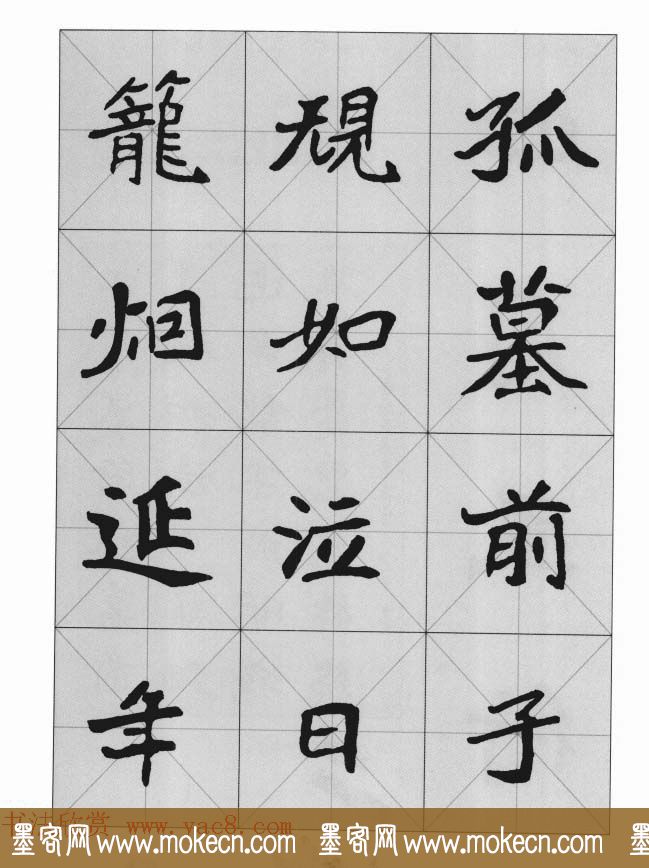 孤墓前子
規如泣日
籠烟延年
书法欣赏 www.yac8.com
墨客网 www.mokecn.com 墨客网 www.mokecn.com